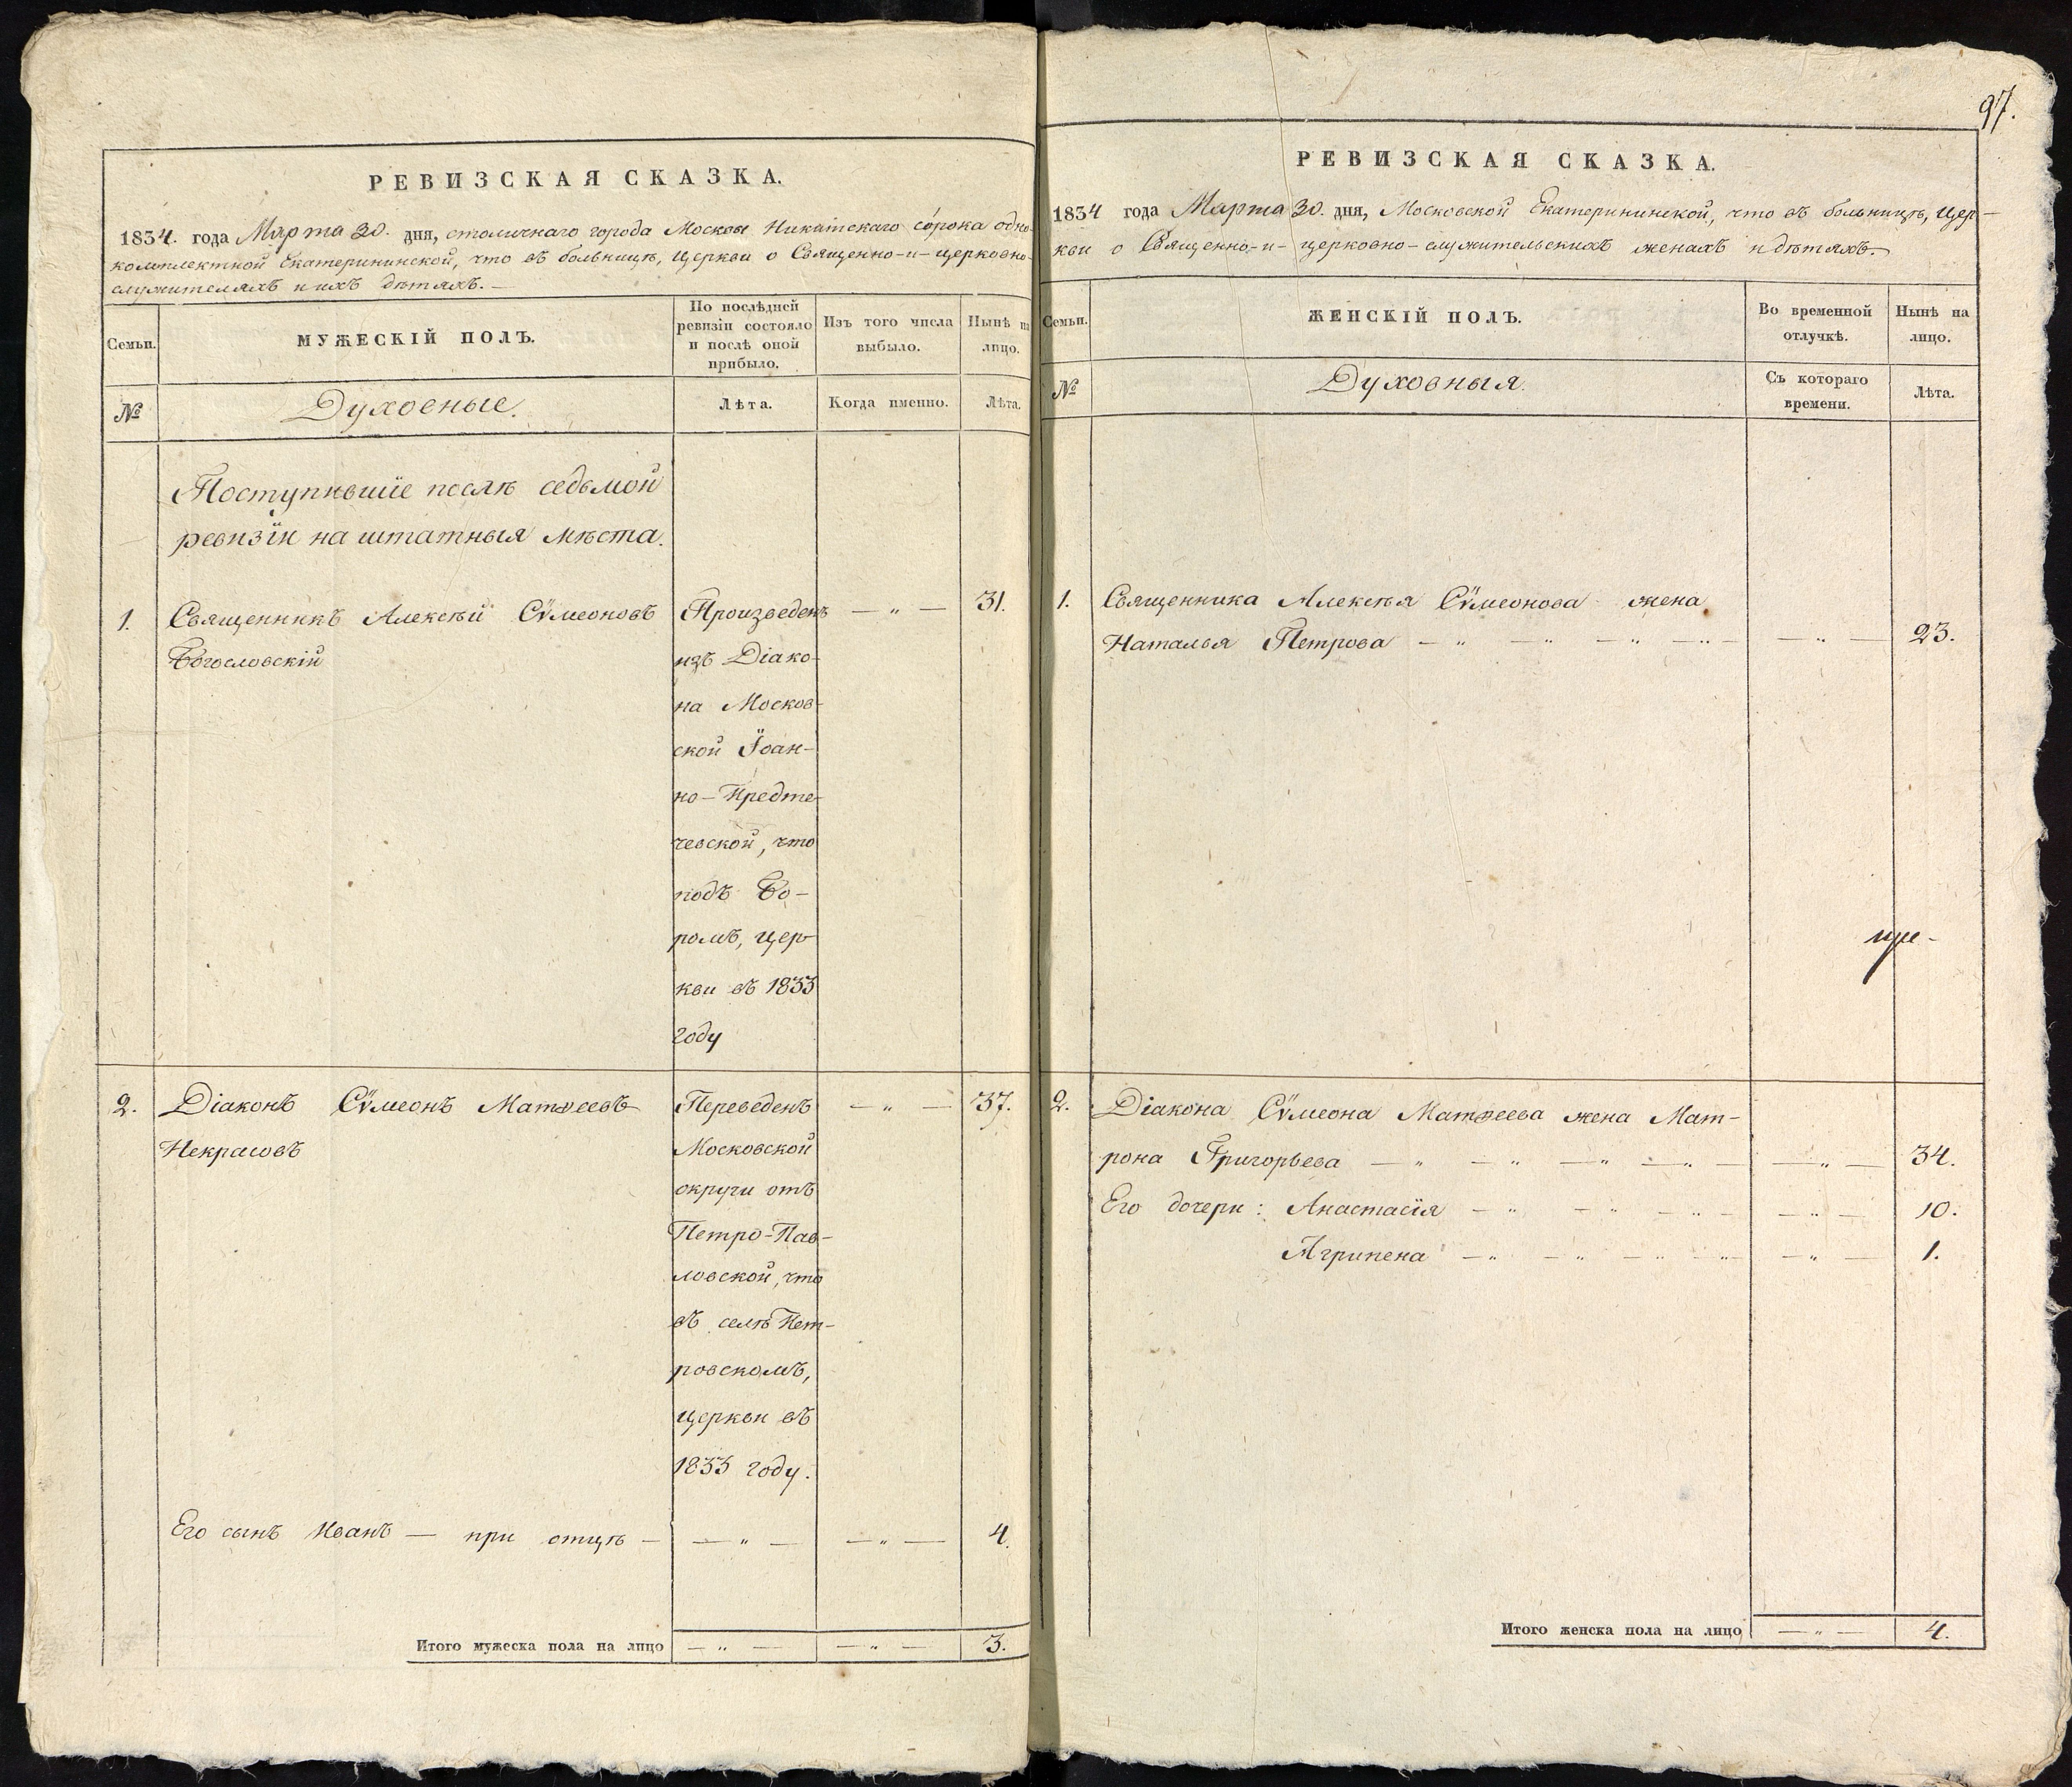 РЕВИЗСКАЯ СКАЗКА.
1834. года Марта 30. дня, столичнаго города Москвы Никитскаго сорока одно-
комплектной Екатерининской, что въ больницѣ, Церкви о Священно-и-церковно-
служителяхъ и ихъ дѣтяхъ.
Семьи.
МУЖЕСКІЙ ПОЛЪ.
По послѣдней
ревизіи состояло
и послѣ оной
прибыло.
Изъ того числа
выбыло.
Нынѣ на
лицо.
№
Духовные.
Лѣта.
Когда именно.
Лѣта.
Поступившіе послѣ седьмой
ревизіи на штатныя мѣста.
1. Священникъ Алексѣй Сѵмеоновъ Произведенъ — „ — 31.
Богословскій изъ Діако-
на Москов-
ской Іоан-
но-Предте-
чевской, что
подъ Бо-
ромъ, цер-
кви въ 1833
году
2. Діаконъ Сѵмеонъ Матѳеевъ Переведенъ — „ — 37.
Некрасовъ Московской
округи отъ
Петро-Пав-
ловской, что
въ селѣ Пет-
ровскомъ,
церкви въ
1833 году.
Его сынъ Иванъ — при отцѣ — — „ — — „ — 4.
Итого мужеска пола на лицо — „ — — „ — 3.
97.
РЕВИЗСКАЯ СКАЗКА.
1834 года Марта 30. дня, Московской Екатерининской, что въ больницѣ, Цер-
кви о Священно-и-церковно-служительскихъ женахъ и дѣтяхъ.
Семьи.
ЖЕНСКІЙ ПОЛЪ.
Во временной
отлучкѣ.
Нынѣ на
лицо.
№
Духовныя.
Съ котораго
времени.
Лѣта.
1. Священника Алексѣя Сѵмеонова жена
Наталья Петрова — „ — „ — „ — „ — — „ — 23.
2. Діакона Сѵмеона Матѳеева жена Мат-
рона Григорьева — „ — „ — „ — „ — — „ — 34.
Его дочери: Анастасія — „ — „ — „ — — „ — 10.
Агрипена — „ — „ — „ — „ — „ — 1.
Итого женска пола на лицо — „ — 4.